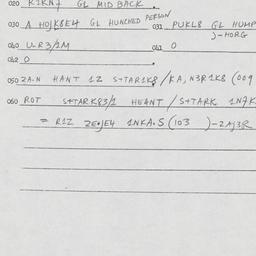 020 KIKN7 GL MID BACK.
030 A HOJK8E4 GL HUNCHED PERSON
031 PUKL8 GL HUMP
)-HORG
040 U-R3/1M 041 0
042 0
050 ZA.N HANT 1Z S+TAR1K8/KA,N3R1K8 (009
060 ROT S+TARK83/1 HUANT / S+TARK 1N7K
= R1Z ZE4JE4 1NKA.S (103 )-2AJ3R